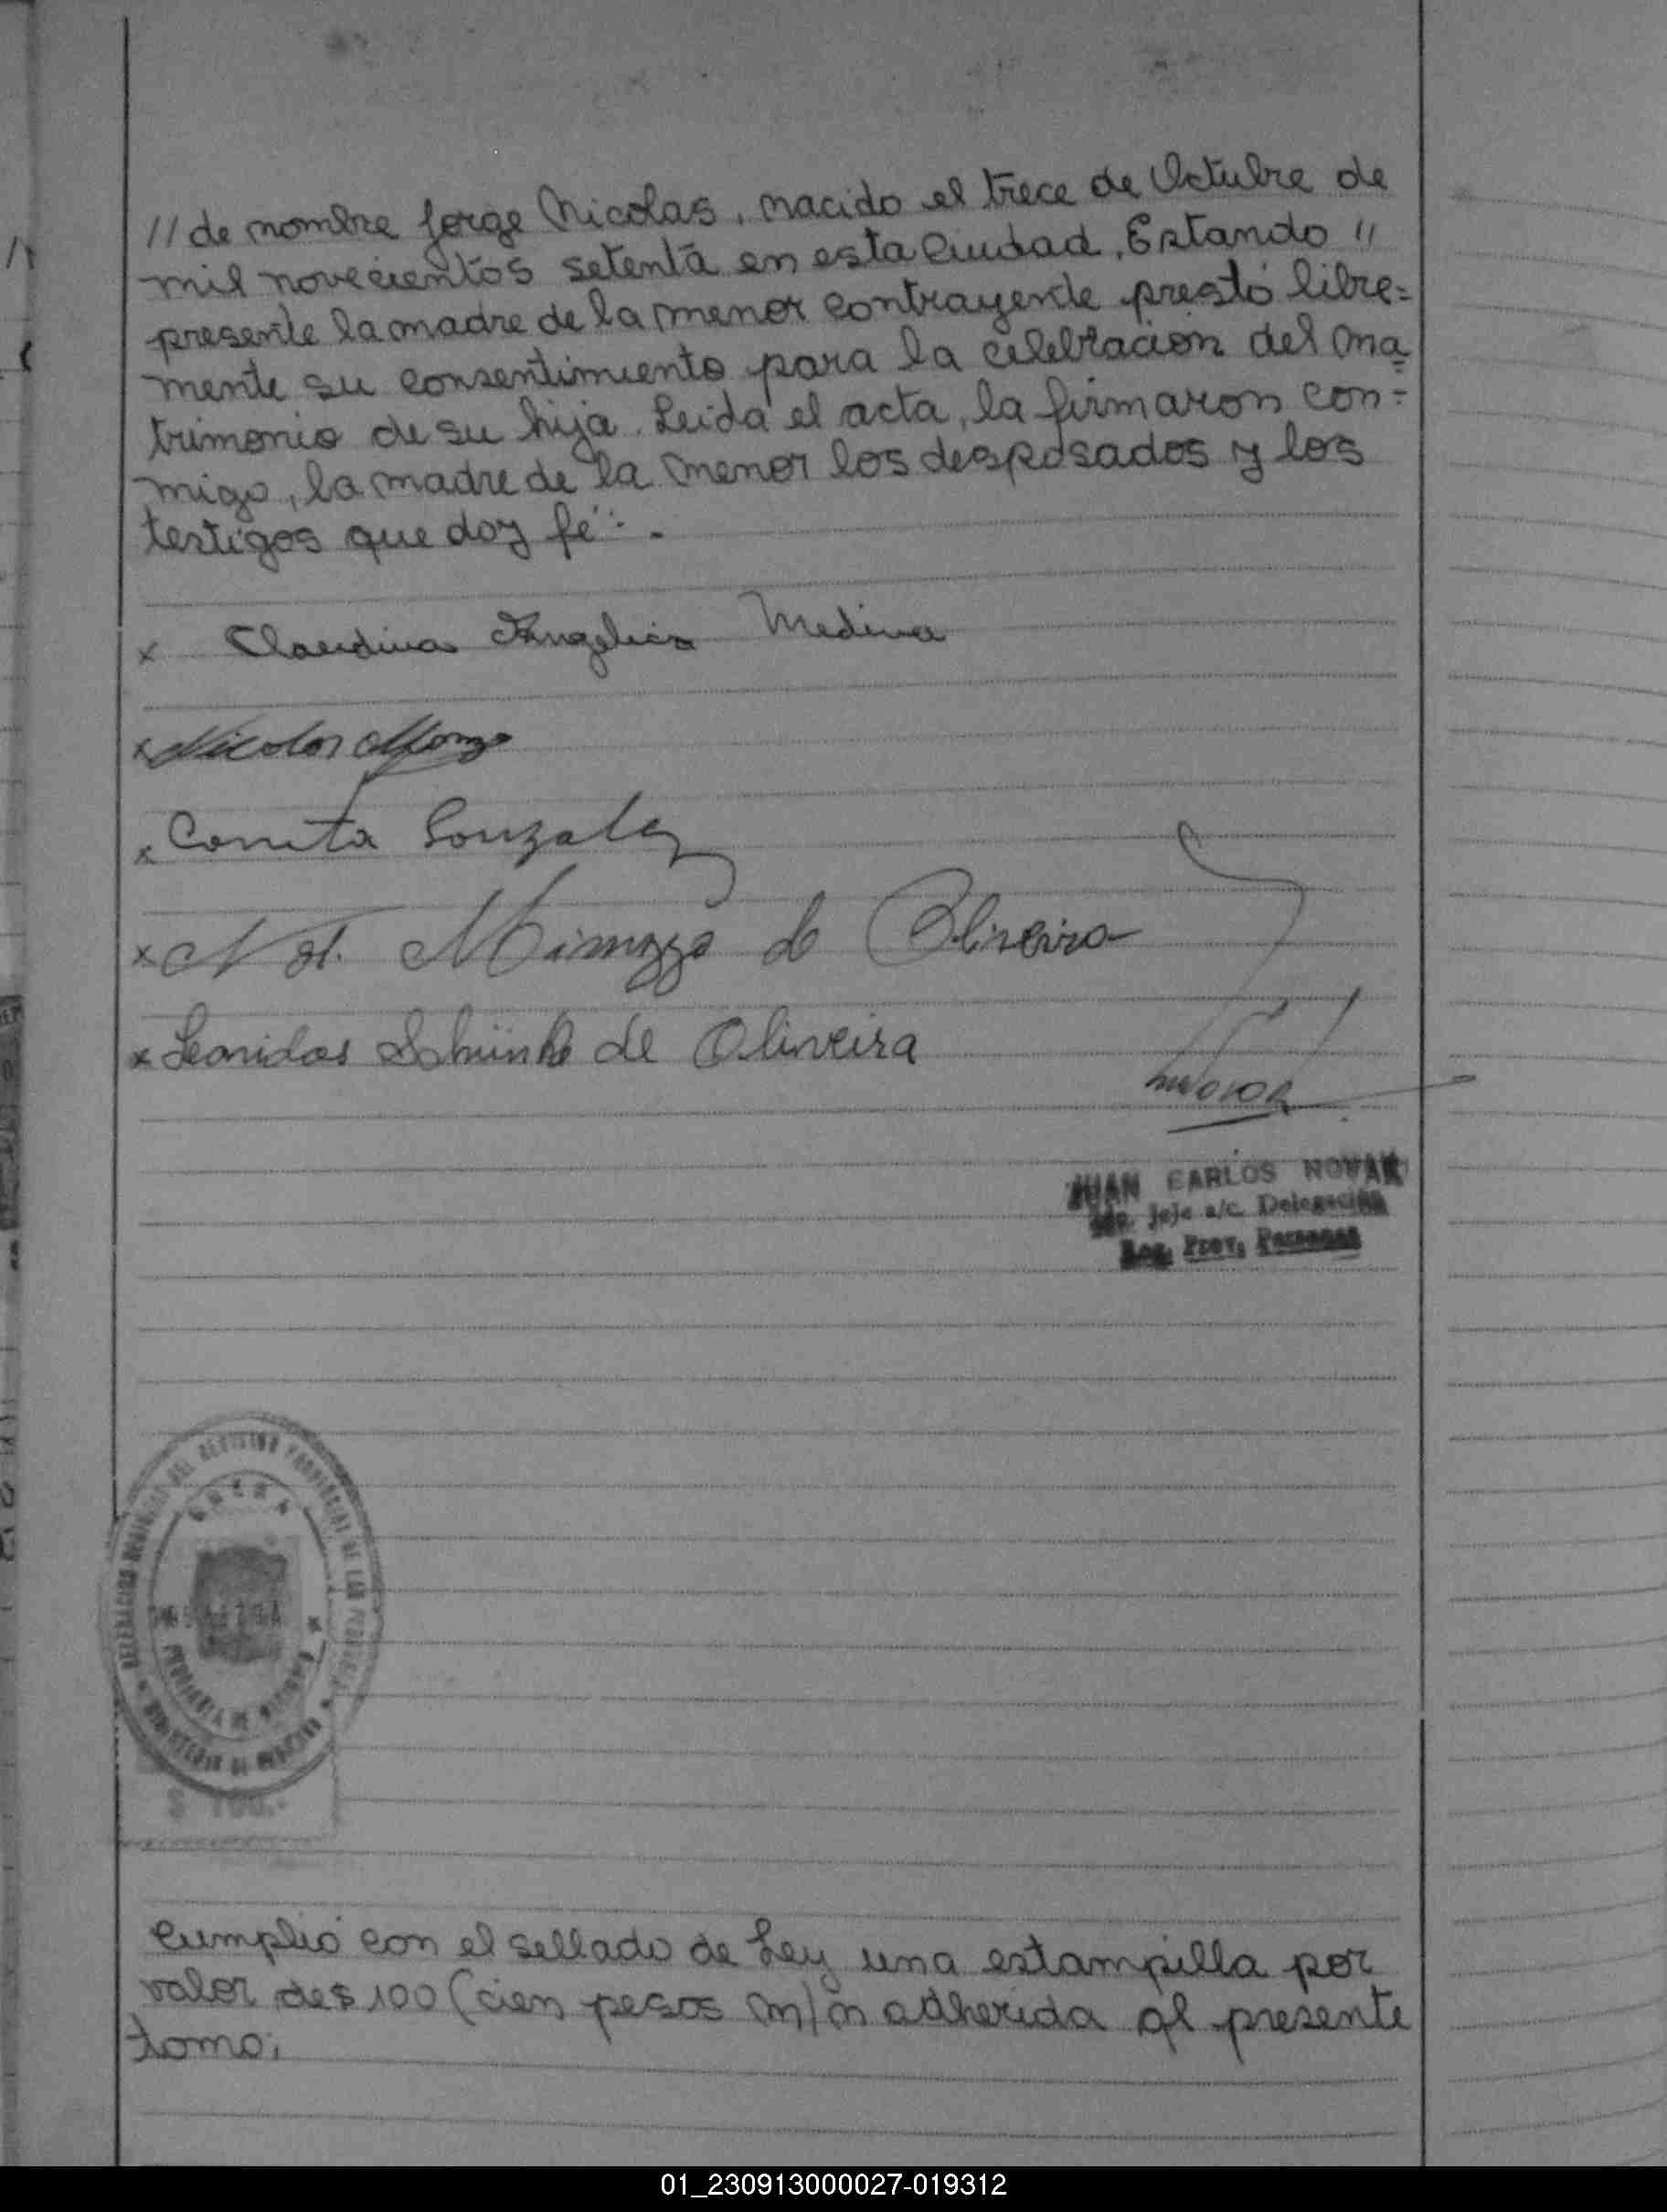 // de nombre Jorge Nicolas, nacido el trece de Octubre de
mil novecientos setenta en esta Ciudad. Estando //
presente la madre de la menor contrayente prestó libre=
mente su consentimiento para la celebracion del ma=
trimonio de su hija. Leida el acta, la firmaron con=
migo, la madre de la menor los desposados y los
testigos que doy fé:.
x Claudina Angelica Medina
x Nicolas Afonzo
x Comita Gonzalez
x N. H. de Oliveira
x Leonidas de Oliveira
JNovak
JUAN CARLOS NOVAK
Jefe a/c. Delegación
Reg. Prov. Personas
DEL REGISTRO PROVINCIAL DE LAS PERSONAS
OBERA
PROVINCIA DE MISIONES
MINISTERIO DE GOBIERNO
$ 100.-
Cumplió con el sellado de Ley una estampilla por
valor de $ 100 (cien pesos m/n adherida al presente
tomo.
01_230913000027-019312